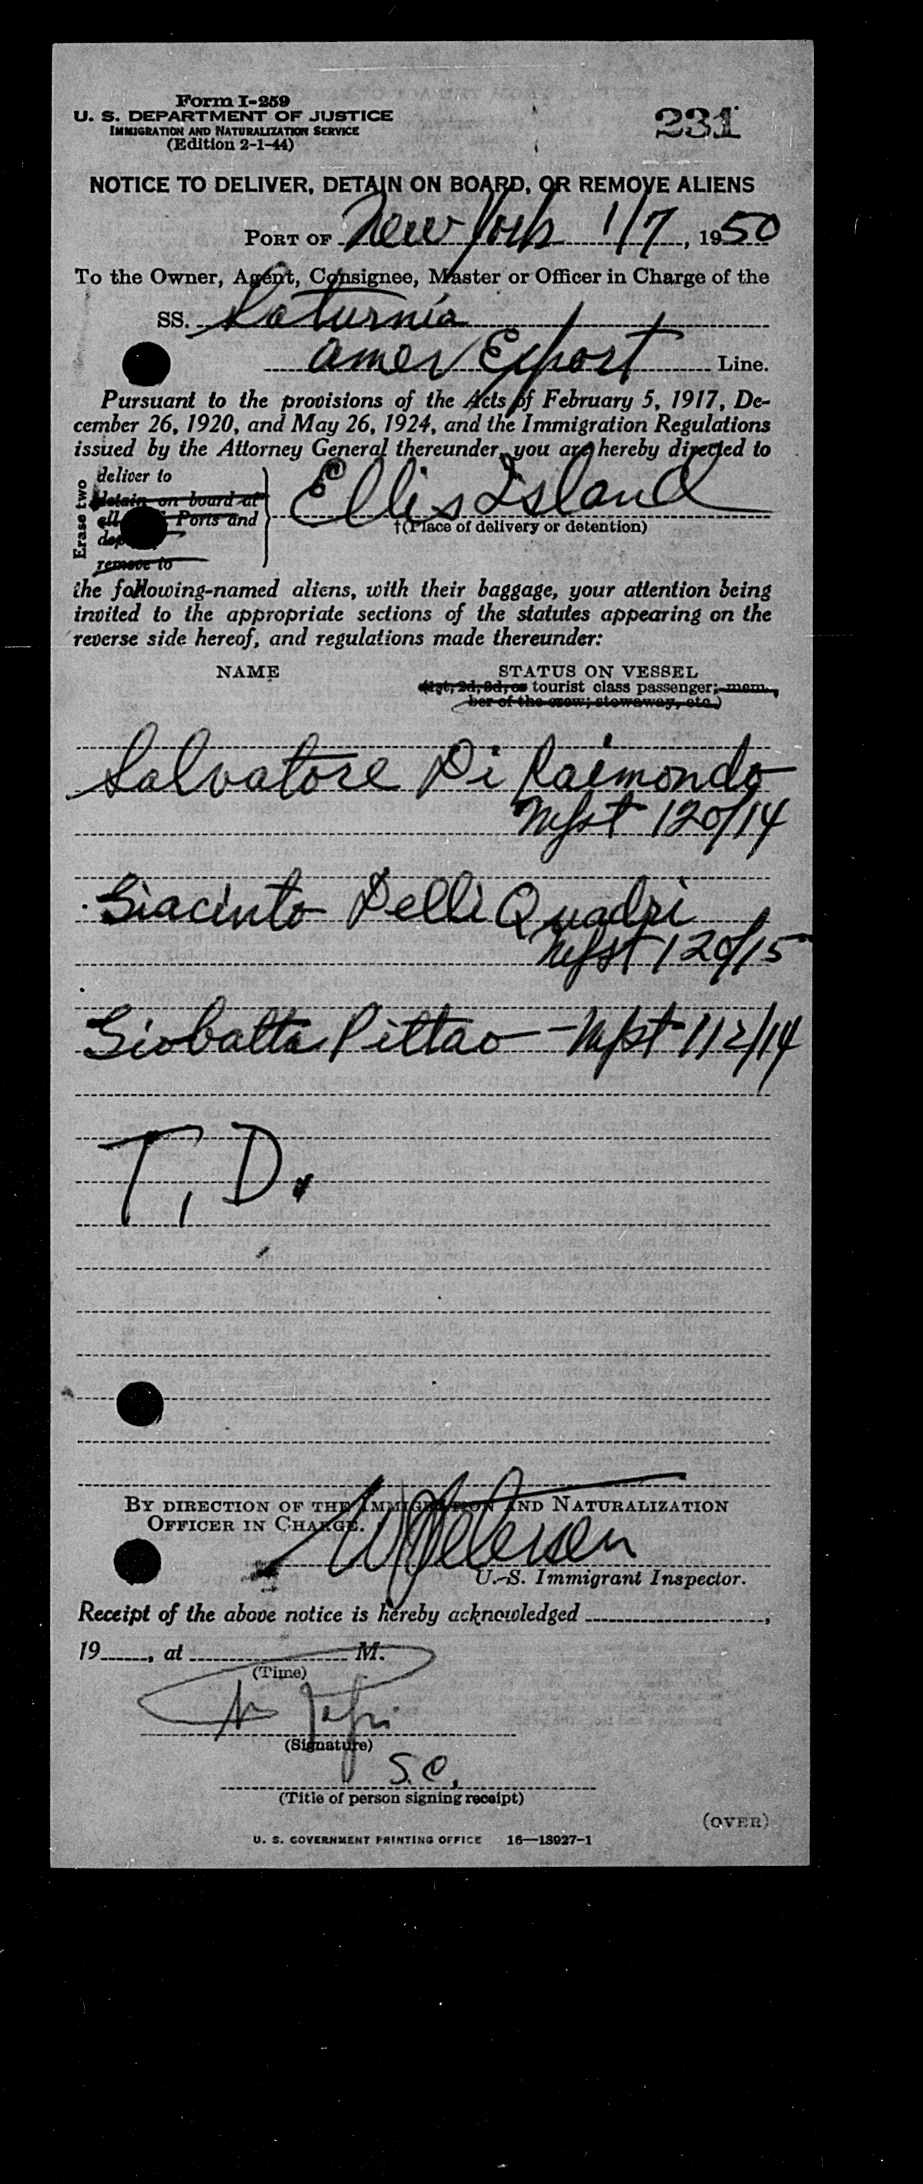 Form I-259
U. S. DEPARTMENT OF JUSTICE
IMMIGRATION AND NATURALIZATION SERVICE
(Edition 2-1-44)
231
NOTICE TO DELIVER, DETAIN ON BOARD, OR REMOVE ALIENS
PORT OF New York 1/7, 1950
To the Owner, Agent, Consignee, Master or Officer in Charge of the
SS. Saturnia
Amer Export Line.
Pursuant to the provisions of the Acts of February 5, 1917, De-
cember 26, 1920, and May 26, 1924, and the Immigration Regulations
issued by the Attorney General thereunder, you are hereby directed to
Erase two
deliver to
detain on board at
all Ports and
remove to
Ellis Island
†(Place of delivery or detention)
the following-named aliens, with their baggage, your attention being
invited to the appropriate sections of the statutes appearing on the
reverse side hereof, and regulations made thereunder:
NAME STATUS ON VESSEL
(1st, 2d, 3d, or tourist class passenger; mem-
ber of the crew; stowaway, etc.)
Salvatore Di Raimondo
Mfst 120/14
Giacinto Delli Quadri
Mfst 120/15
Giobatta Pittao - Mfst 112/14
T. D.
BY DIRECTION OF THE IMMIGRATION AND NATURALIZATION
OFFICER IN CHARGE.
Petersen
U. S. Immigrant Inspector.
Receipt of the above notice is hereby acknowledged ,
19 , at M.
(Time)
(Signature)
S.O.
(Title of person signing receipt)
(OVER)
U. S. GOVERNMENT PRINTING OFFICE 16—13927-1